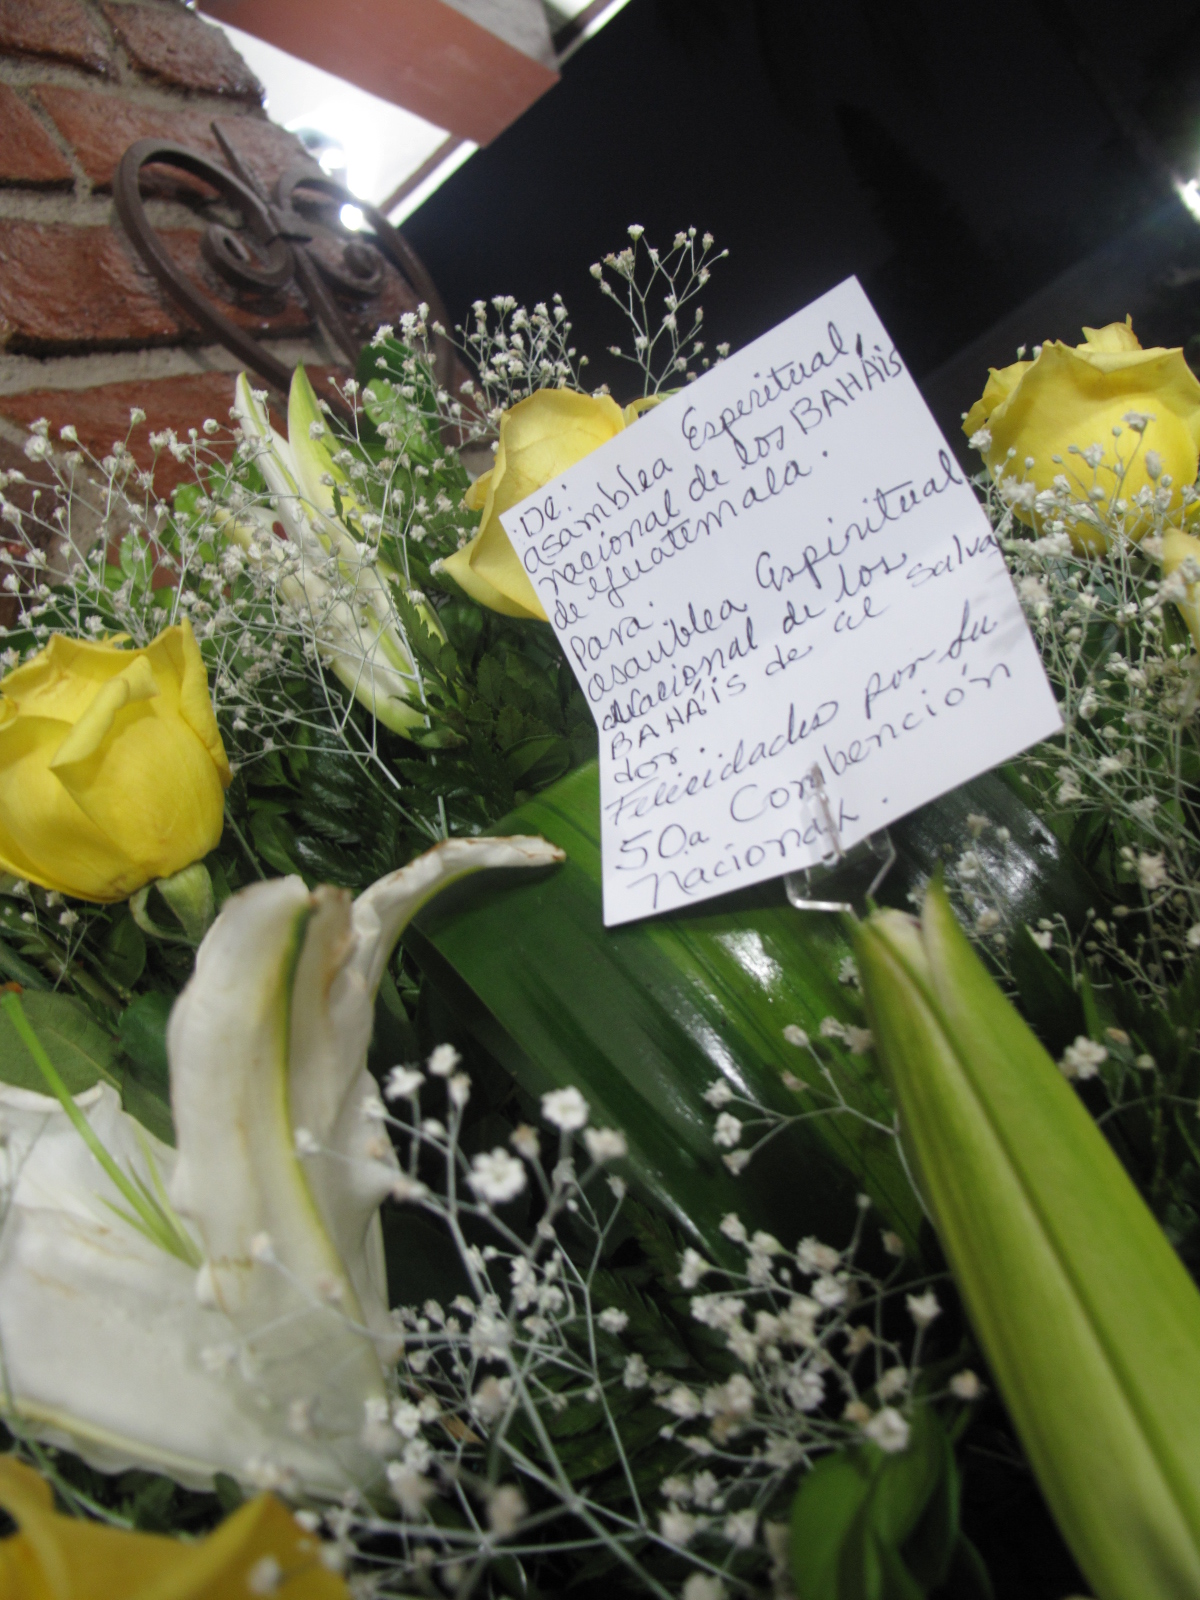 De:
asamblea Esperitual,
nacional de los BAHÁIS
de guatemala.
Para:
asamblea Espiritual
Nacional de los
BAHÁIS de al Salva
dor.
Felicidades por su
50.a Combención
nacional.